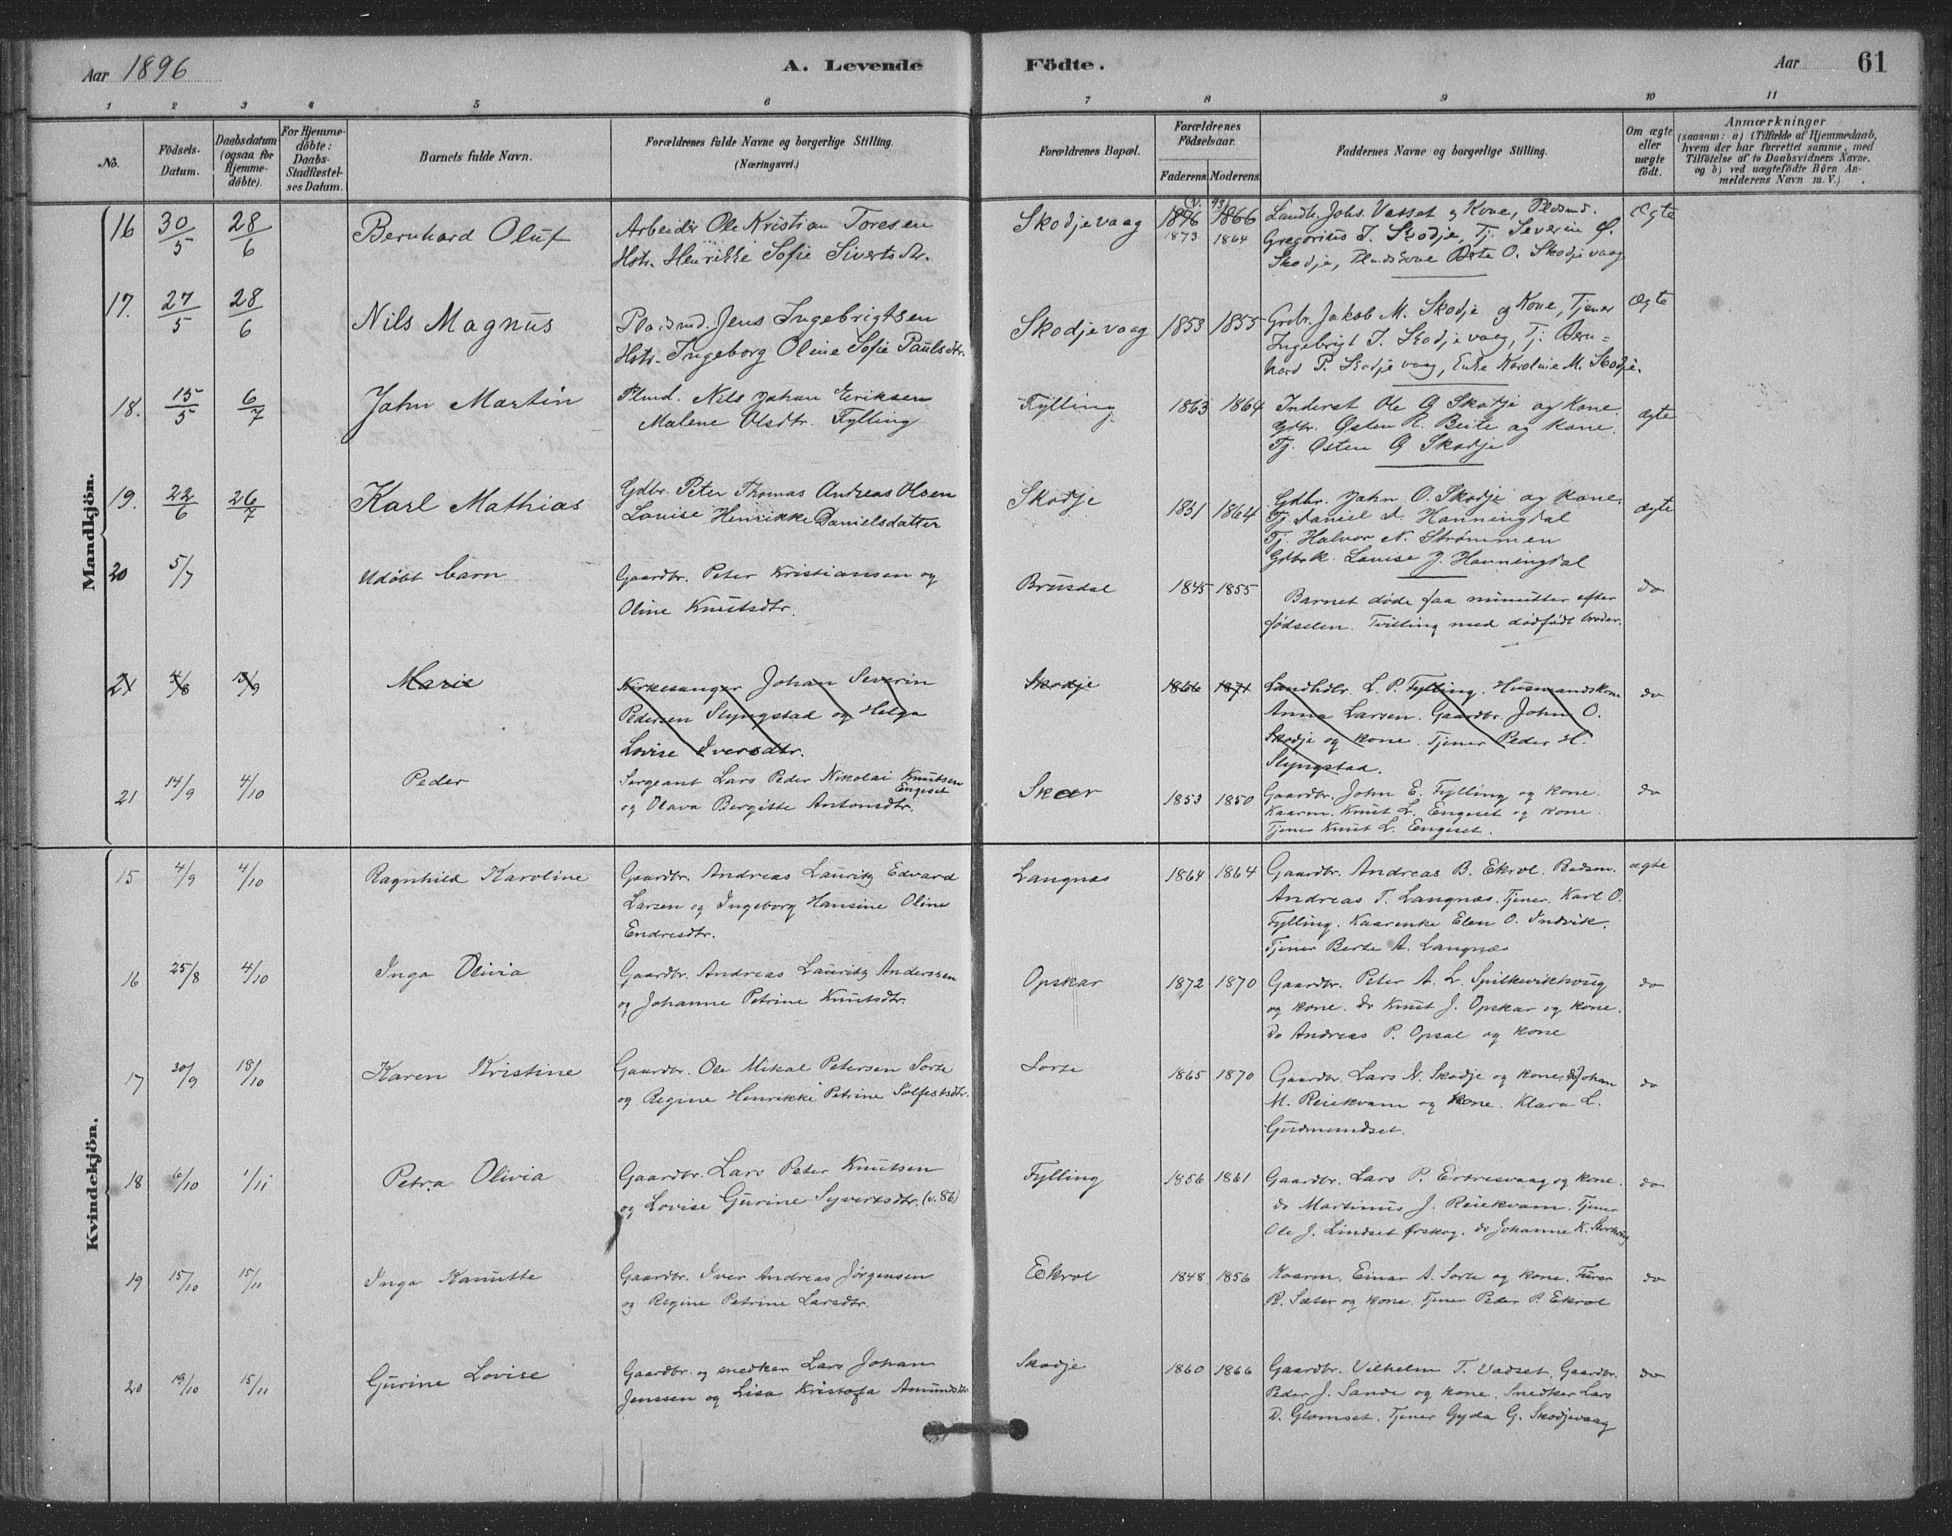 Aar 1896
A. Levende Födte.
Aar 61
1 2 3 4 5 6 7 8 9 10 11
No.
Födsels-Datum.
Daabsdatum (ogsaa for Hjemme-döbte).
For Hjemme-döbte: Daabs-Stadfæstel-ses Datum.
Barnets fulde Navn.
Forældrenes fulde Navne og borgerlige Stilling.
(Næringsvei.)
Forældrenes Bopæl.
Forældrenes Födselsaar.
Faderens. Moderens.
Faddernes Navne og borgerlige Stilling.
Om ægte eller uægte födt.
Anmærkninger
(saasom: a) i Tilfælde af Hjemmedaab,
hvem der har forrettet samme, med
Tilföielse af to Daabsvidners Navne,
og b) ved uægtefödte Börn An-
melderens Navn m. V.)
Mandkjön.
16 30/5 28/6 Bernhard Oluf
Arbeider Ole Kristian Toresen
Hstr. Henrikke Sofie Sivertsdtr.
Skodjevaag
1896 1866
1873 1864
Landh. Johs. Vasset og Kone, Pladsmd.
Gregorius I. Skodje, Tj. Severin O.
Skodje, Pladskone Berte O. Skodjevaag
Ægte
17. 27/5 28/6 Nils Magnus
Pladsmd. Jens Ingebrigtsen
Hstr. Ingeborg Oline Sofie Paulsdtr.
Skodjevaag 1853 1855
Grdbr. Jakob M. Skodje og Kone, Tjener
Ingebrigt I. Skodjevaag, Tj. Bern=
hard P. Skodjevaag, Enke Karoline M. Skodje.
Ægte
18. 15/5 6/7 John Martin
Plmd. Nils Johan Eriksen
Malene Olsdtr. Fylling
Fylling 1863 1864
Inderst Ole G Skodje og Kone.
Gdbr. Østen R. Beite og Kone.
Tj. Østen G Skodje
ægte
19. 22/6 26/7 Karl Mathias
Gdbr. Peter Thomas Andreas Olsen
Louise Henrikke Danielsdatter
Skodje 1831 1864
Gdbr. John O. Skodje og Kone.
Tj. Daniel A. Honningdal
Tj. Halvor N. Strømmen
Gdbrk. Louise J. Honningdal
ægte
20 5/7 Udøbt barn
Gaardbr. Peter Kristiansen og
Oline Knutsdtr.
Brusdal 1845 1855
Barnet døde faa minutter efter
fødselen. Tvilling med dødfødt broder.
do
21 4/8 13/9 Marie
Kirkesanger Johan Severin
Pedersen Slyngstad og Helga
Lovise Iversdtr.
Skodje 1866 1871
Landhdlr. L. P. Fylling. Husmandskone
Anna Larsen. Gaardbr. John O.
Skodje og kone. Tjener Peder H.
Slyngstad.
do
21 14/9 4/10 Peder
Sergeant Lars Peder Nikolai Knutsen
Engeset
og Olava Bergitte Antonsdtr.
Skaar 1853 1850
Gaardbr. John E. Fylling og kone.
Kaarm. Knut L. Engeset og kone.
Tjener Knut L. Engeset.
do
Kvindekjön.
15 4/9 4/10 Ragnhild Karoline
Gaardbr. Andreas Lauritz Edvard
Larsen og Ingeborg Hansine Oline
Endresdtr.
Langnæs 1864 1864
Gaardbr. Andreas B. Ekrol. Pladsm.
Andreas T. Langnæs. Tjener Karl O.
Fylling. Kaarenke Elen O. Indvik.
Tjener Berte A. Langnæs
ægte
16 25/8 4/10 Inga Olivia
Gaardbr. Andreas Lauritz Anderssen
og Johanne Petrine Knutsdtr.
Opskar 1872 1870
Gaardbr. Peter A. L. Spilkevikhoug
og kone. do Knut J. Opskar og kone.
Do Andreas P. Opsal og kone
do
17 20/9 18/10 Karen Kristine
Gaardbr. Ole Mikal Petersen Sorte
og Regine Henrikke Petrine Solfestsdtr.
Sorte 1865 1870
Gaardbr. Lars N. Skodje og kone. do Johan
M. Reiekvam og kone. Klara L.
Gudmundset.
do
18 6/10 1/11 Petra Olivia
Gaardbr. Lars Peter Knutsen
og Lovise Gurine Syvertsdtr. (v. 86)
Fylling 1856 1861
Gaardbr. Lars P. Ertresvaag og kone.
do Martinus J. Reiekvam. Tjener
Ole J. Lindset Ørskog. do Johanne K.
do
19 15/10 15/11 Inga Kanutte
Gaardbr. Iver Andreas Jørgensen
og Regine Petrine Larsdtr.
Ekrol 1848 1856
Kaarm. Einar A. Sorte og kone.
R. Sæter og kone. Tjener Peder P. Ekrol
do
20 19/10 15/11 Gurine Lovise
Gaardbr. og snedker Lars Johan
Jenssen og Lisa Kristofa Amundsdtr.
Skodje 1860 1866
Gaardbr. Vilhelm T. Vadset. Gaardbr.
Peder J. Sande og kone. Snedker Lars
D. Glomset. Tjener Gyda G. Skodjevaag
do